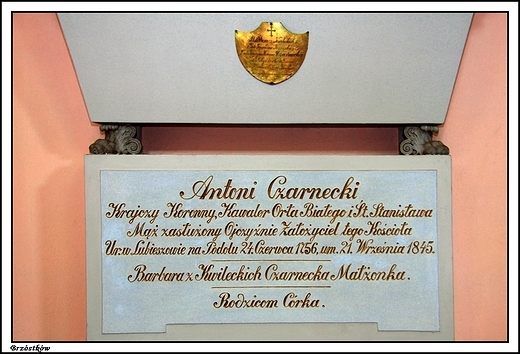 Antoni Czarnecki
Krajczy Koronny, Kawaler Orła Białego i St. Stanisława
Mąż zasłużony Ojczyźnie Założyciel tego Kościoła
Ur. w Lubieszowie na Podolu 24 Czerwca 1756, um. 21. Września 1845.
Barbara z Kwileckich Czarnecka Małżonka.
Rodzicom Córka.
Brzóstków